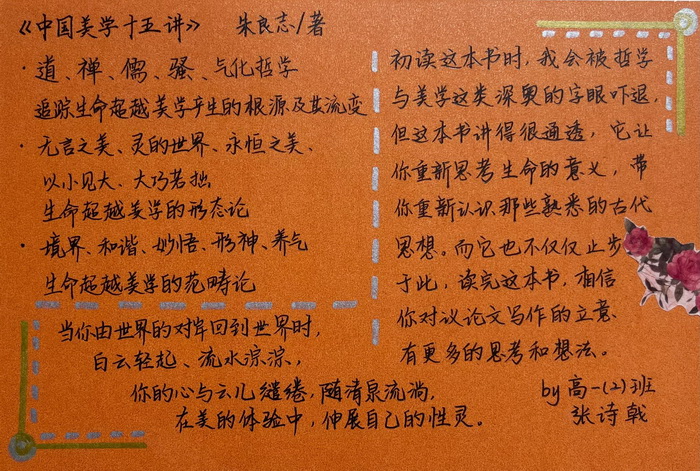 《中国美学十五讲》 朱良志/著
· 道、禅、儒、骚、气化哲学
追踪生命超越美学产生的根源及其流变
· 无言之美、灵的世界、永恒之美、
以小见大、大巧若拙
生命超越美学的形态论
· 境界、和谐、妙悟、形神、养气
生命超越美学的范畴论
初读这本书时，我会被哲学
与美学这类深奥的字眼吓退，
但这本书讲得很通透，它让
你重新思考生命的意义，带
你重新认识那些熟悉的古代
思想。而它也不仅仅止步
于此，读完这本书，相信
你对议论文写作的立意
有更多的思考和想法。
by 高一(2)班
张诗戟
当你由世界的对岸回到世界时，
白云轻起、流水淙淙，
你的心与云儿缱绻，随清泉流淌，
在美的体验中，伸展自己的性灵。